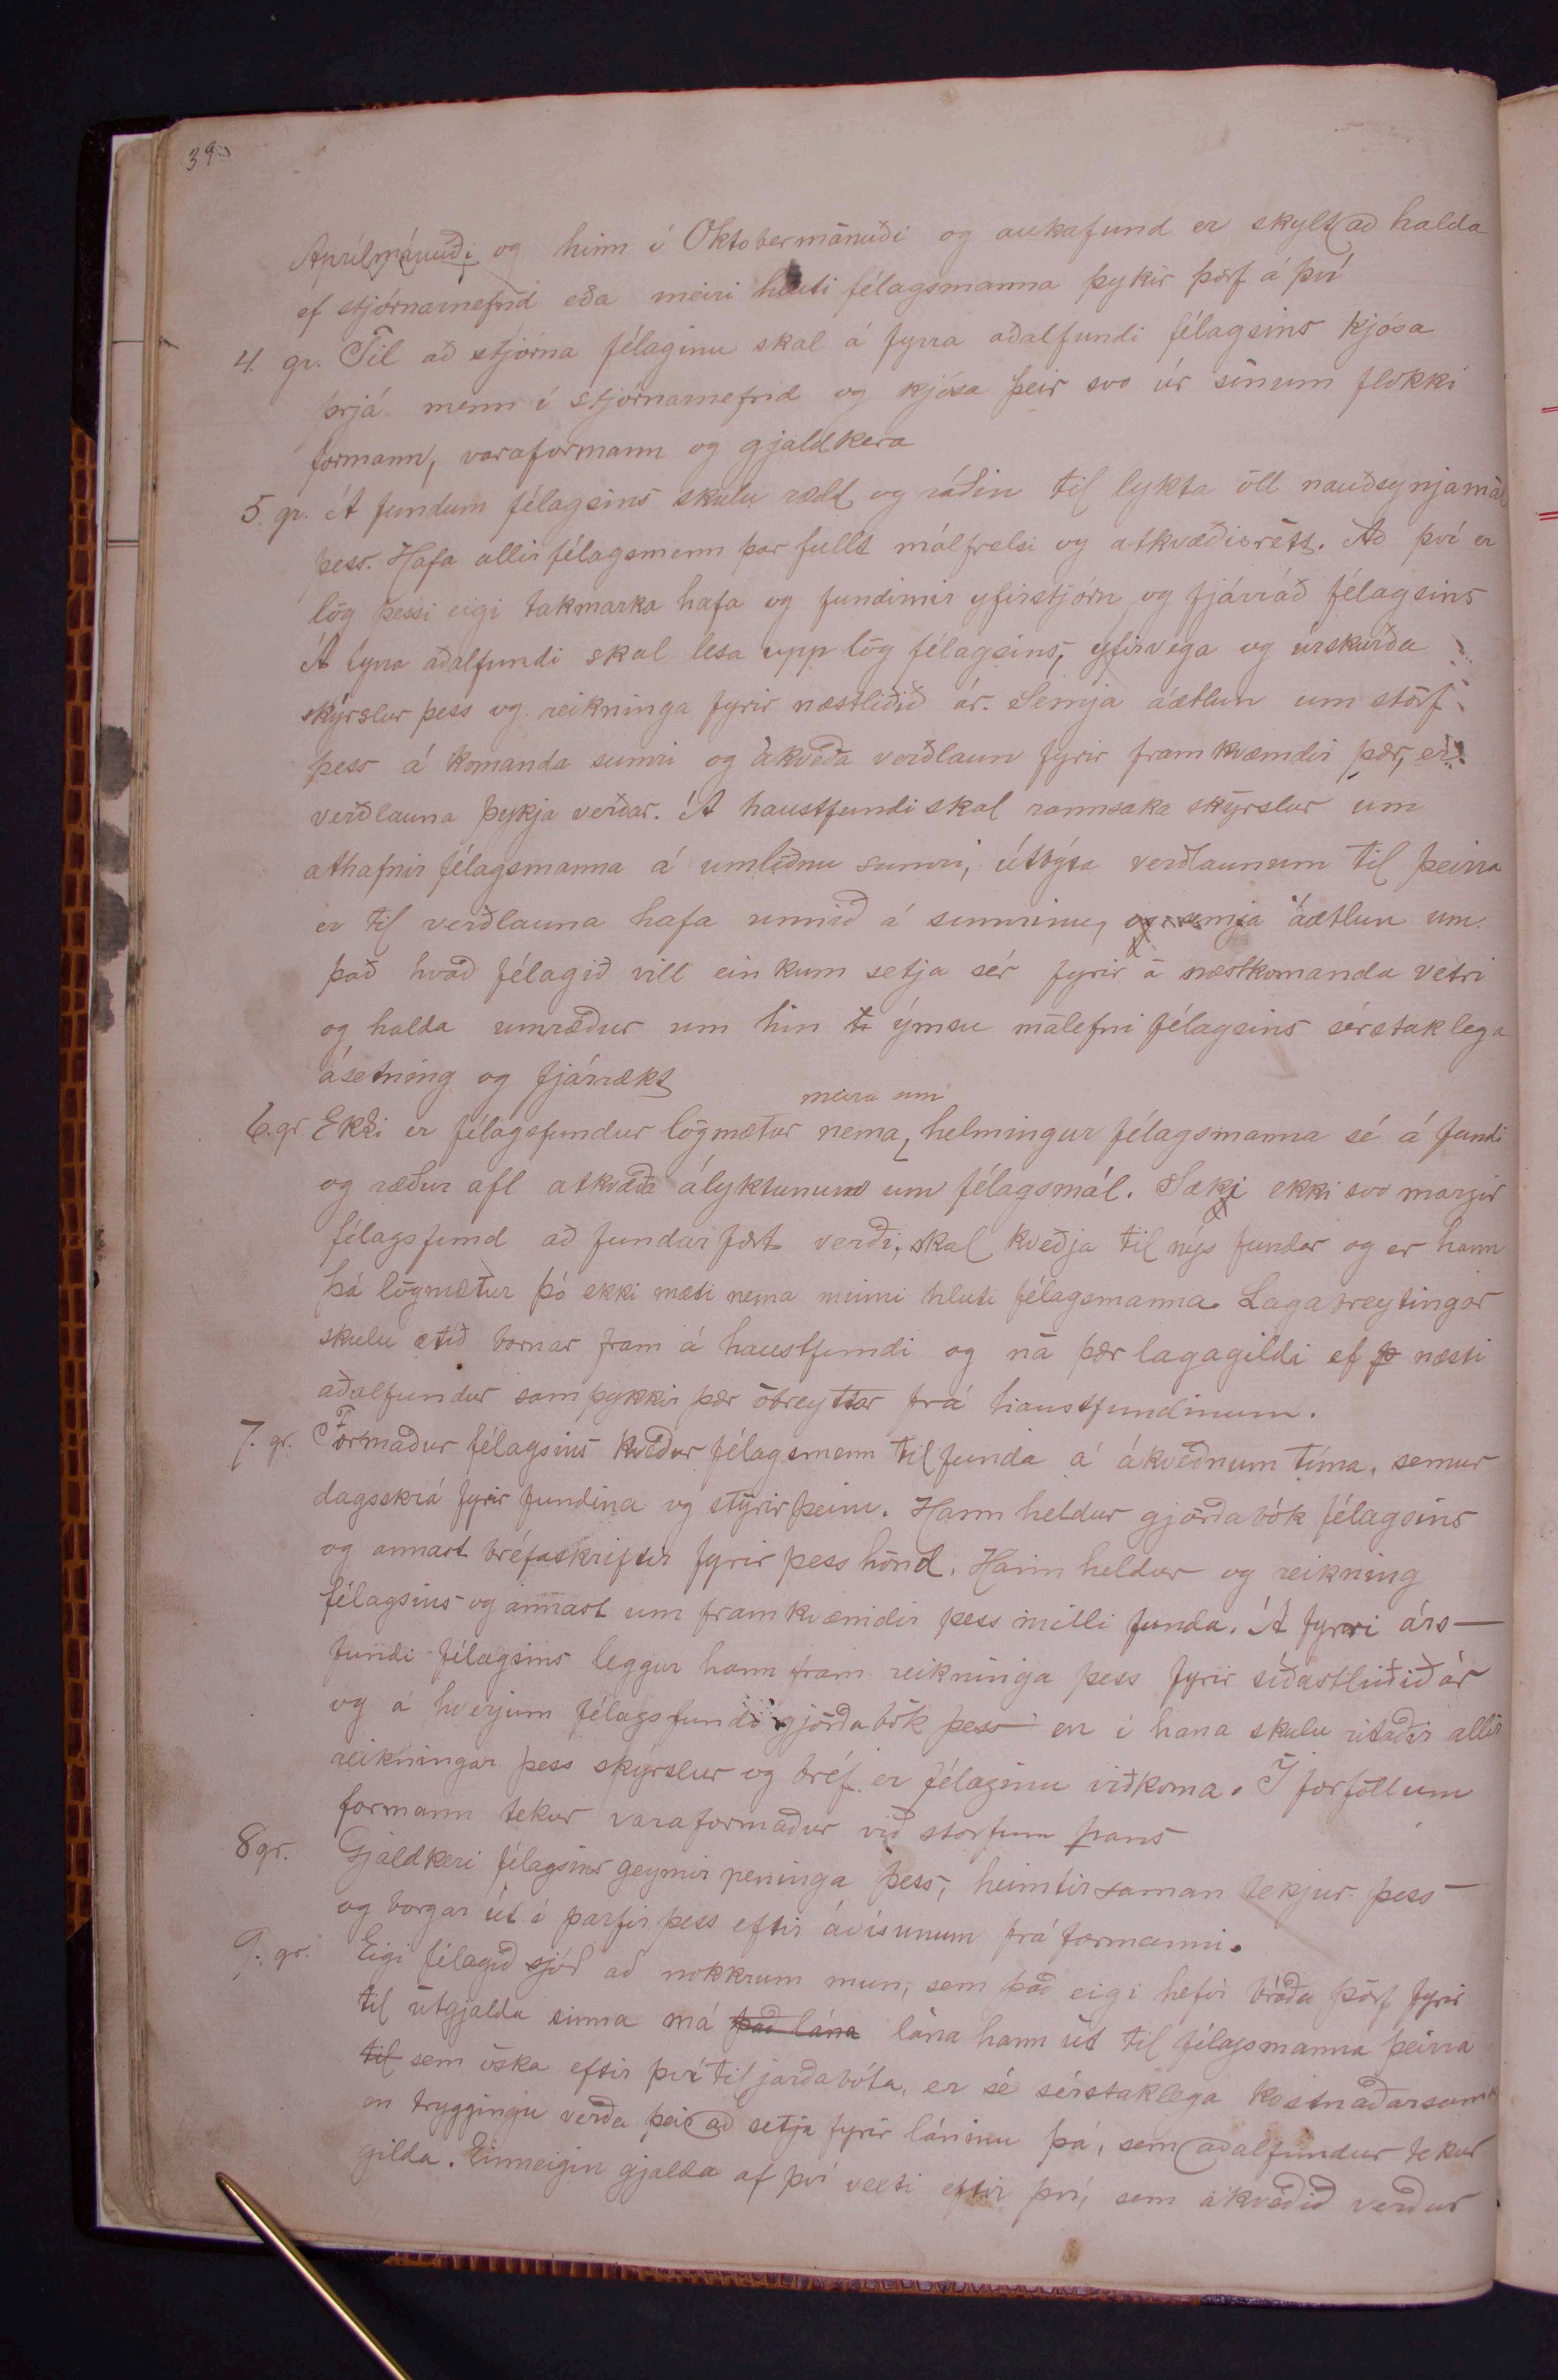 39
Aprílmánuði og hinn í Oktobermánuði og aukafund er skylt að halda
ef stjórnarnefnd eða meiri hluti félagsmanna þykir þörf á því
4. gr. Til að stjórna félaginu skal á fyrra aðalfundi félagsins kjósa
þrjá menn í stjórnarnefnd og kjósa þeir svo úr sínum flokki
formann, varaformann og gjaldkera
5. gr. Á fundum félagsins skulu rædd og ráðin til lykta öll nauðsynjamál
þess. Hafa allir félagsmenn þar fullt málfrelsi og atkvæðisrétt. Að því er
lög þessi eigi takmarka hafa og fundirnir yfirstjórn og fjárráð félagsins
Á fyrra aðalfundi skal lesa upp lög félagsins, yfirvega og úrskurða
skýrslur þess og reikninga fyrir næstliðið ár. Semja áætlun um störf
þess á komanda sumri og ákveða verðlaun fyrir framkvæmdir þær, er
verðlauna þykja verðar. Á haustfundi skal rannsaka skýrslur um
athafnir félagsmanna á umliðnu sumri, útbýta verðlaunum til þeirra
er til verðlauna hafa unnið á sumrinu, og semja áætlun um
það hvað félagið vill einkum setja sér fyrir á næstkomanda vetri
og halda umræður um hin ýmsu málefni félagsins sérstaklega
ásetning og fjárrækt
meira um
6. gr Ekki er félagsfundur lögmætur nema, helmingur félagsmanna sé á fundi
og ræður afl atkvæða ályktunum um félagsmál. Sæki ekki svo margir
félagsfund að fundarfært verði, skal kveðja til nýs fundar og er hann
þá lögmætur þó ekki mæti nema minni hluti félagsmanna. Lagabreytingar
skulu ætíð bornar fram á haustfundi og ná þær lagagildi ef þ næsti
aðalfundur samþykkir þær óbreyttar frá haustfundinum.
7. gr. Formaður félagsins kveður félagsmenn til funda á ákveðnum tíma, semur
dagsskrá fyrir fundina og stýrir þeim. Hann heldur gjörðabók félagsins
og annast bréfaskriftir fyrir þess hönd. Hann heldur og reikning
félagsins og annast um framkvæmdir þess milli funda. Á fyrri árs-
fundi félagsins leggur hann fram reikninga þess fyrir síðastliðið ár
og á hverjum félagsfundi gjörðabók þess en í hana skulu ritaðir allir
reikningar þess skýrslur og bréf er félaginu viðkoma. Í forföllum
formann tekur varaformaður við störfum hans
8 gr. Gjaldkeri félagsins geymir peninga þess, heimtir saman tekjur þess
og borgar út í þarfir þess eftir ávísunum frá formanni.
9. gr. Eigi félagið sjóð að nokkrum mun, sem það eigi hefir bráða þörf fyrir
til útgjalda sinna má það lána lána hann út til félagsmanna þeirra
til sem óska eftir því til jarðabóta, er sé sérstaklega kostnaðarsamt
en tryggingu verða þeir að setja fyrir láninu þá, sem aðalfundur tekur
gilda. Einneigin gjalda af því vexti eftir því, sem ákveðið verður